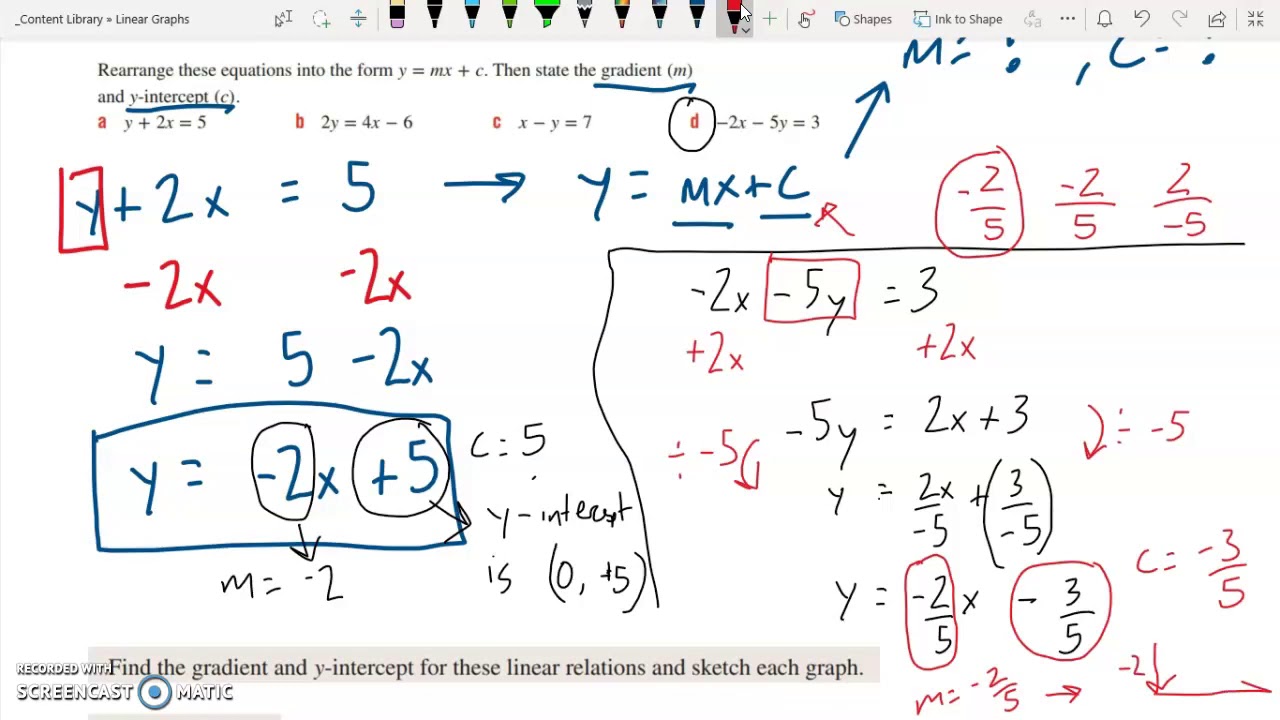 _Content Library » Linear Graphs
Shapes
Ink to Shape
m = ? , c = ?
Rearrange these equations into the form y = mx + c. Then state the gradient (m)
and y-intercept (c).
a y + 2x = 5 b 2y = 4x − 6 c x − y = 7 d −2x − 5y = 3
y + 2x = 5 → y = mx + c
-2x -2x
y = 5 - 2x
y = -2x + 5
c = 5
y-intercept
is (0, +5)
m = -2
-2/5 -2/5 2/-5
-2x - 5y = 3
+2x +2x
-5y = 2x + 3
÷ -5 ÷ -5
y = 2x/-5 + (3/-5)
y = -2/5 x - 3/5
c = -3/5
m = -2/5 → -2
Find the gradient and y-intercept for these linear relations and sketch each graph.
RECORDED WITH
SCREENCAST MATIC